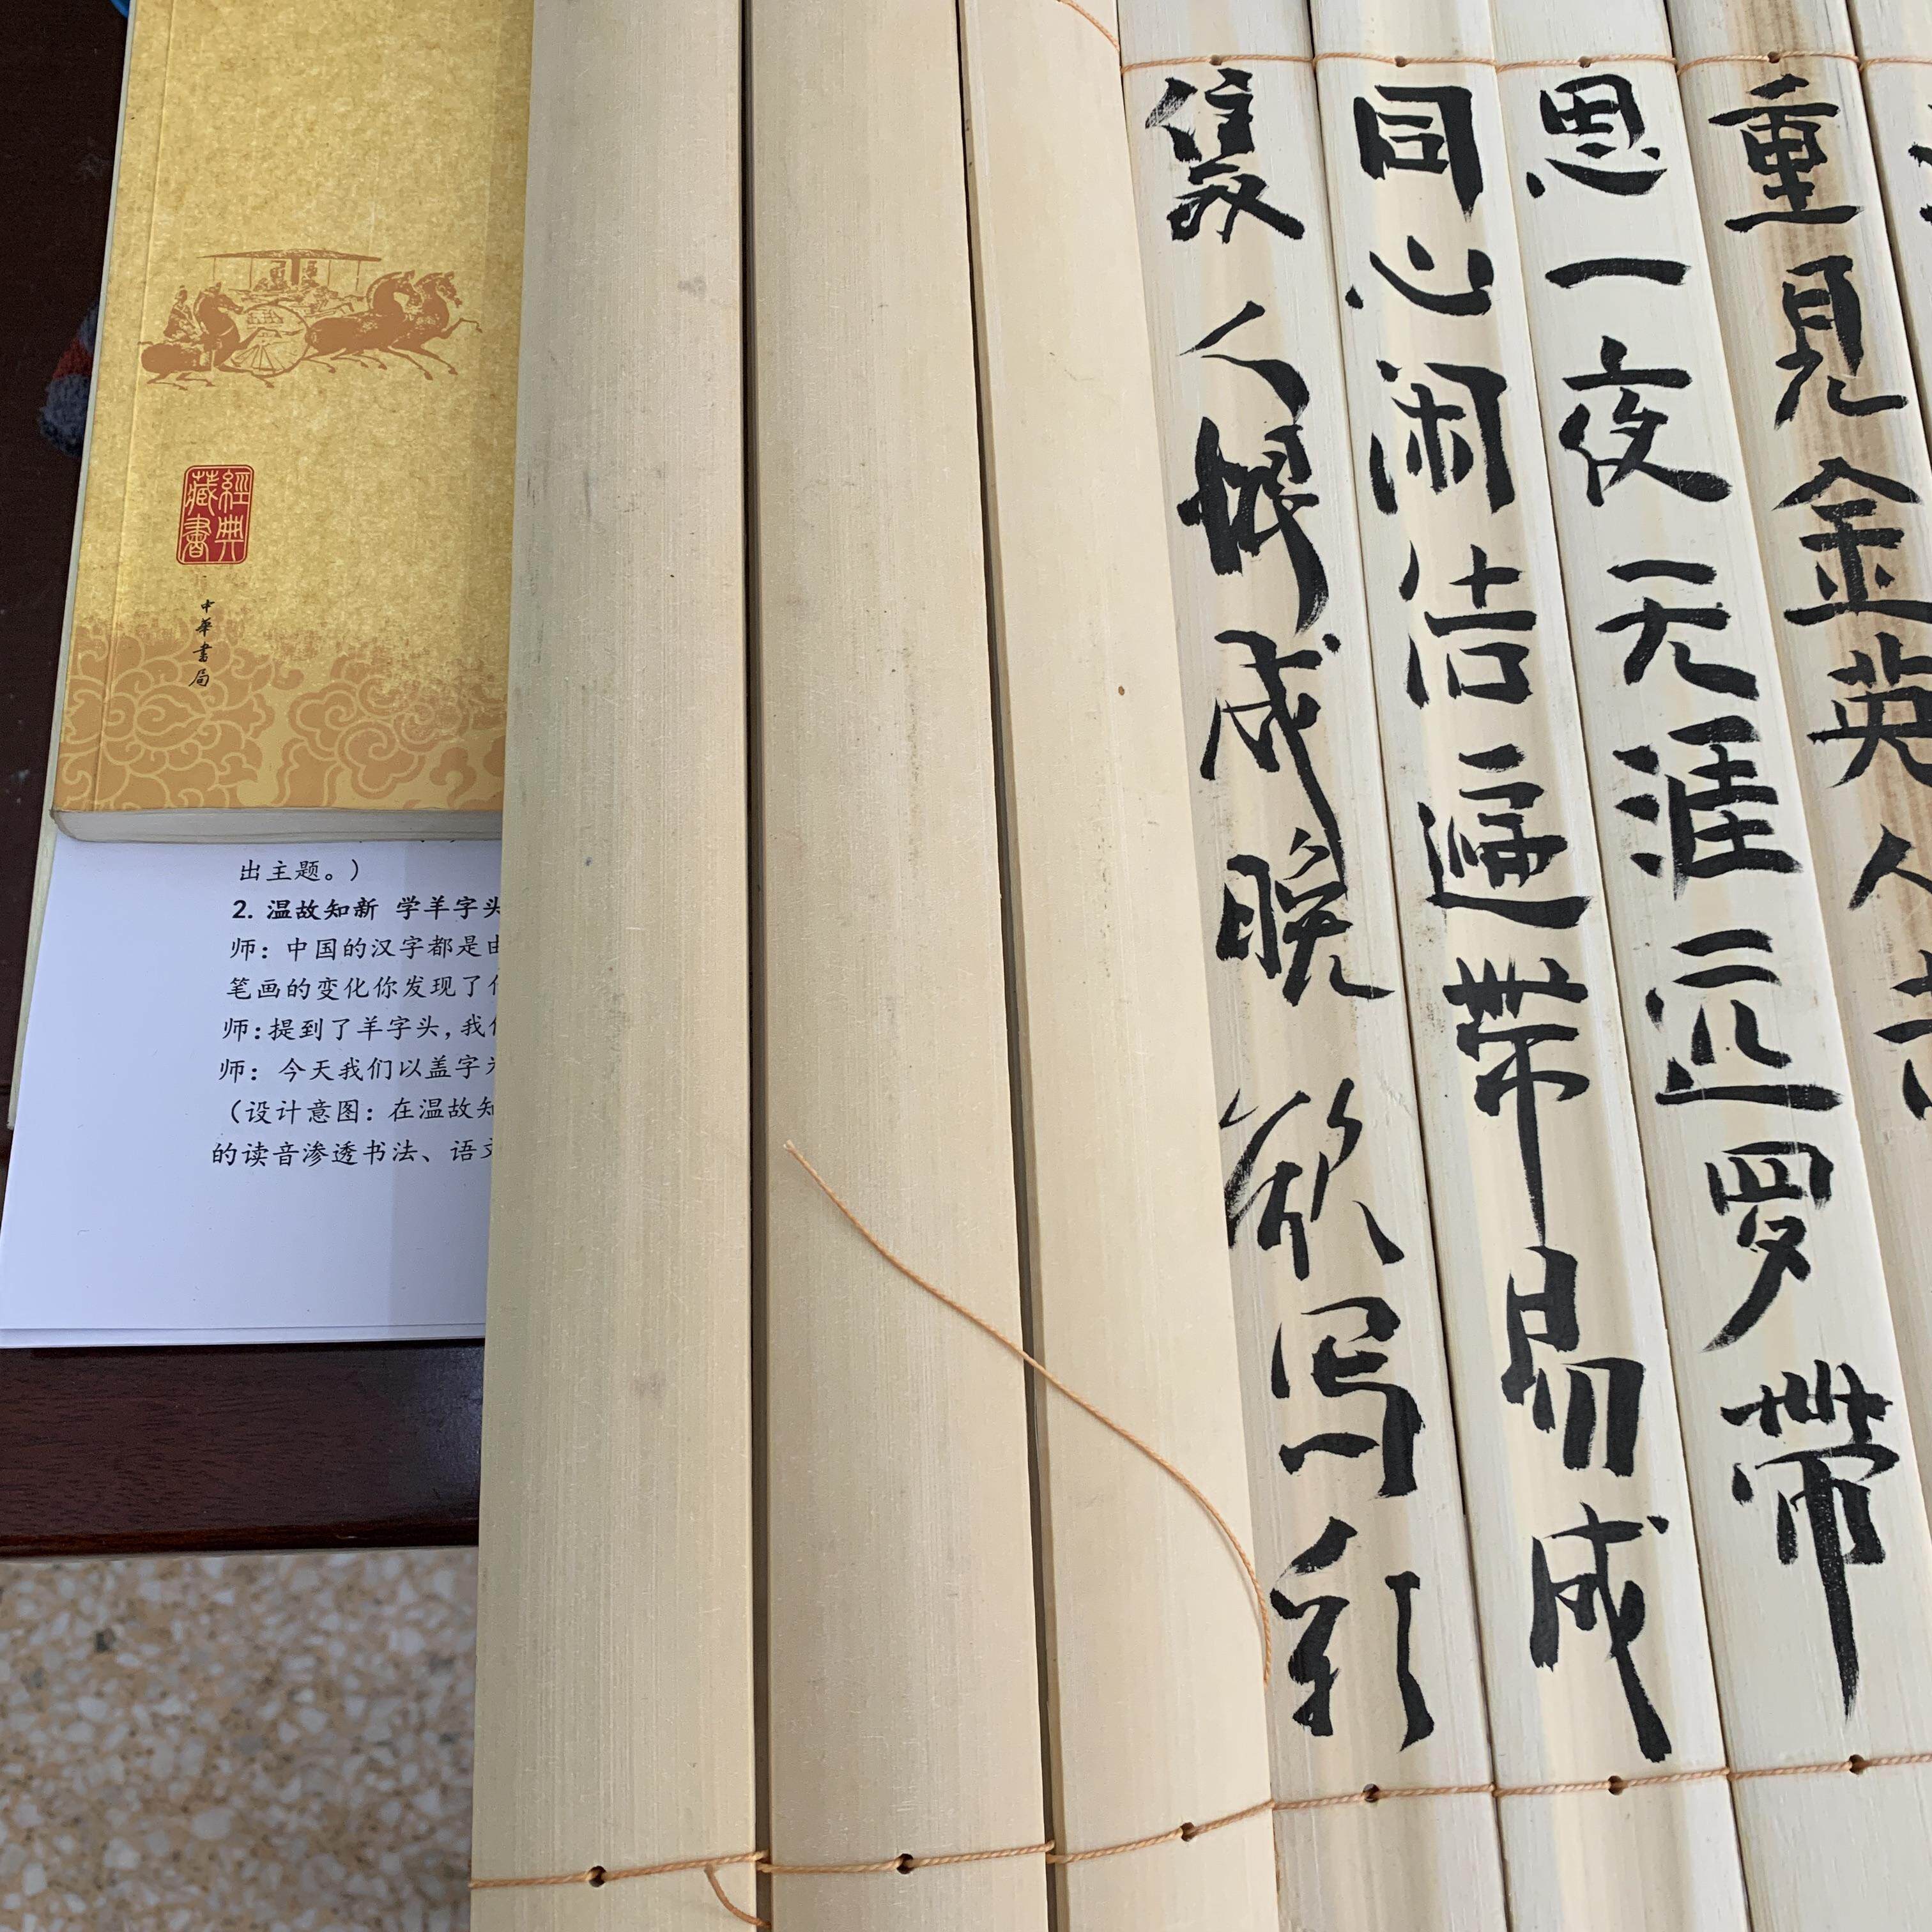 重見金英人
思一夜无涯远罗带
同心闲结遍带易成
隻人恨成晚欲写彩
經典
藏書
中華書局
出主题。）
2. 温故知新 学羊字头
师：中国的汉字都是由
笔画的变化你发现了
师：提到了羊字头，我们
师：今天我们以盖字为
（设计意图：在温故知
的读音渗透书法、语文